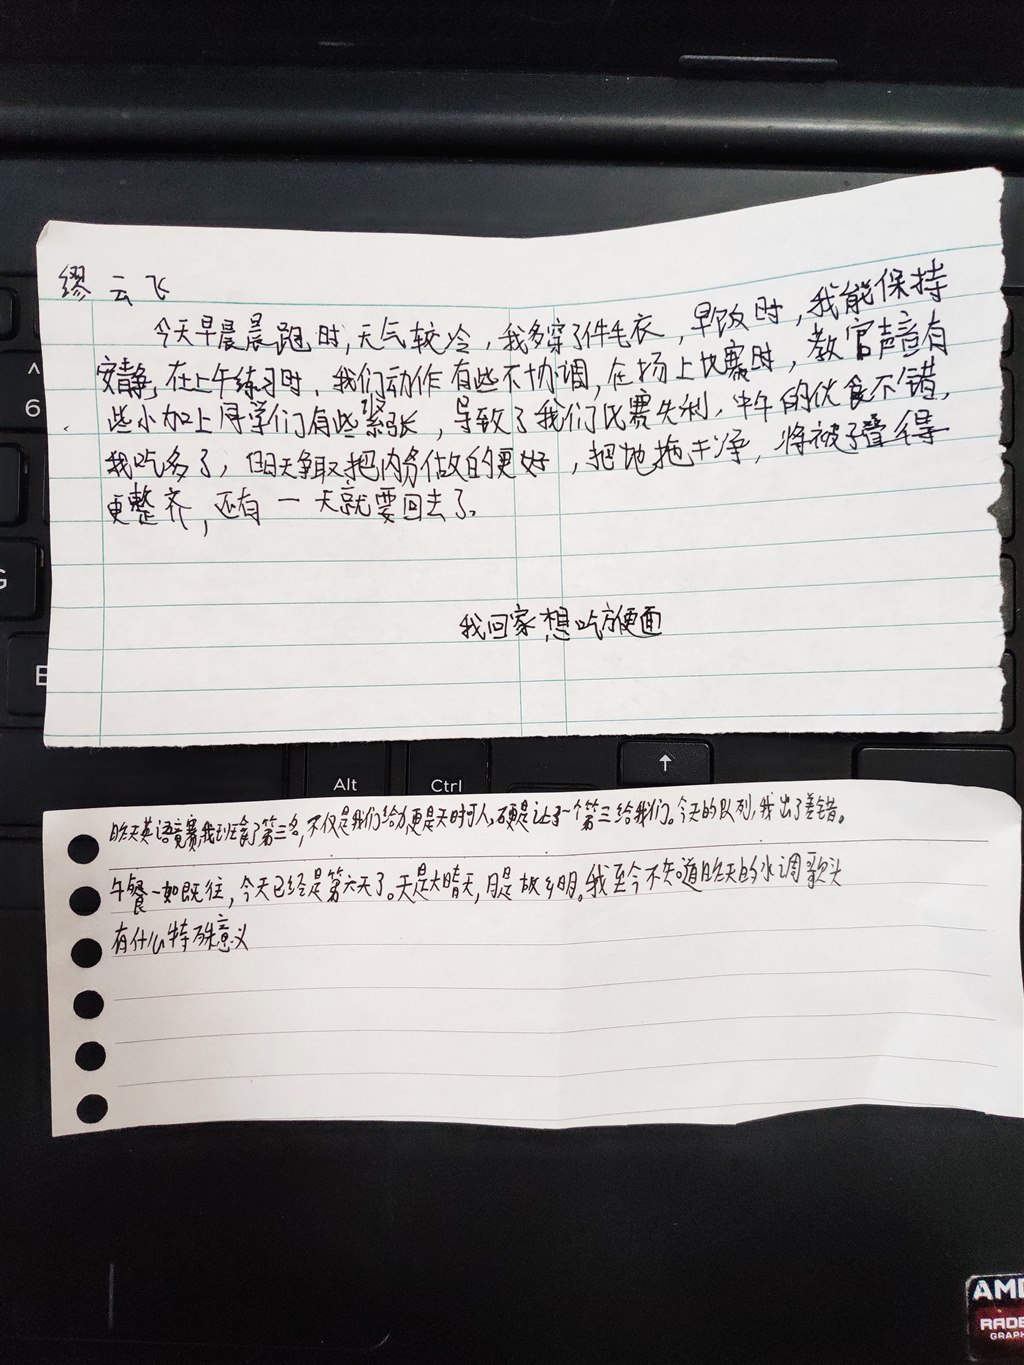 缪云飞
今天早晨晨跑时,天气较冷,我多穿了件毛衣,早饭时,我能保持
安静,在上午练习时,我们动作有些不协调,在场上比赛时,教官声音有
些小加上同学们有些紧张,导致了我们比赛失利,中午的伙食不错,
我吃多了,明天争取把内务做的更好,把地拖干净,将被子叠得
更整齐,还有一天就要回去了。
我回家想吃方便面
昨天英语竞赛,我班拿了第三名,不仅是我们给力,更是天时人,更是让了一个第三给我们。今天的队列,我出了差错。
午餐一如既往,今天已经是第六天了。天是大晴天,月是故乡明。我至今不知道昨天的水调歌头
有什么特殊意义
^
6
G
E
Alt
Ctrl
↑
AMD
RADE
GRAPH